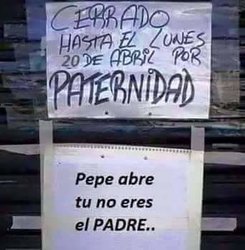 CERRADO
HASTA EL LUNES
20 DE ABRIL POR
PATERNIDAD
Pepe abre
tu no eres
el PADRE..